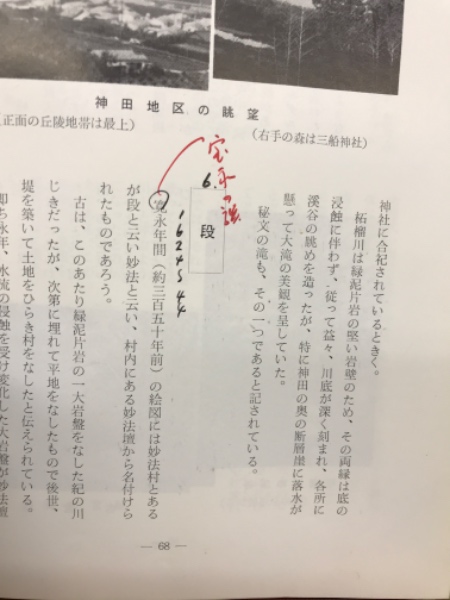 神田地区の眺望
正面の丘陵地帯は最上）
（右手の森は三船神社）
神社に合祀されているときく。
柘榴川は緑泥片岩の堅い岩壁のため、その両縁は底の
浸蝕に伴わず、従って益々、川底が深く刻まれ、各所に
溪谷の眺めを造ったが、特に神田の奥の断層崖に落水が
懸って大滝の美観を呈していた。
秘文の滝も、その一つであると記されている。
6.
段
1624〜44
永年間（約三百五十年前）の絵図には妙法村とある
が段と云い妙法と云い、村内にある妙法壇から名付けら
れたものであろう。
古は、このあたり緑泥片岩の一大岩盤をなした紀の川
じきだったが、次第に埋れて平地をなしたもので後世、
堤を築いて土地をひらき村をなしたと伝えられている。
即ち永年、水流の侵蝕を受け変化した大岩盤が妙法壇
— 68 —